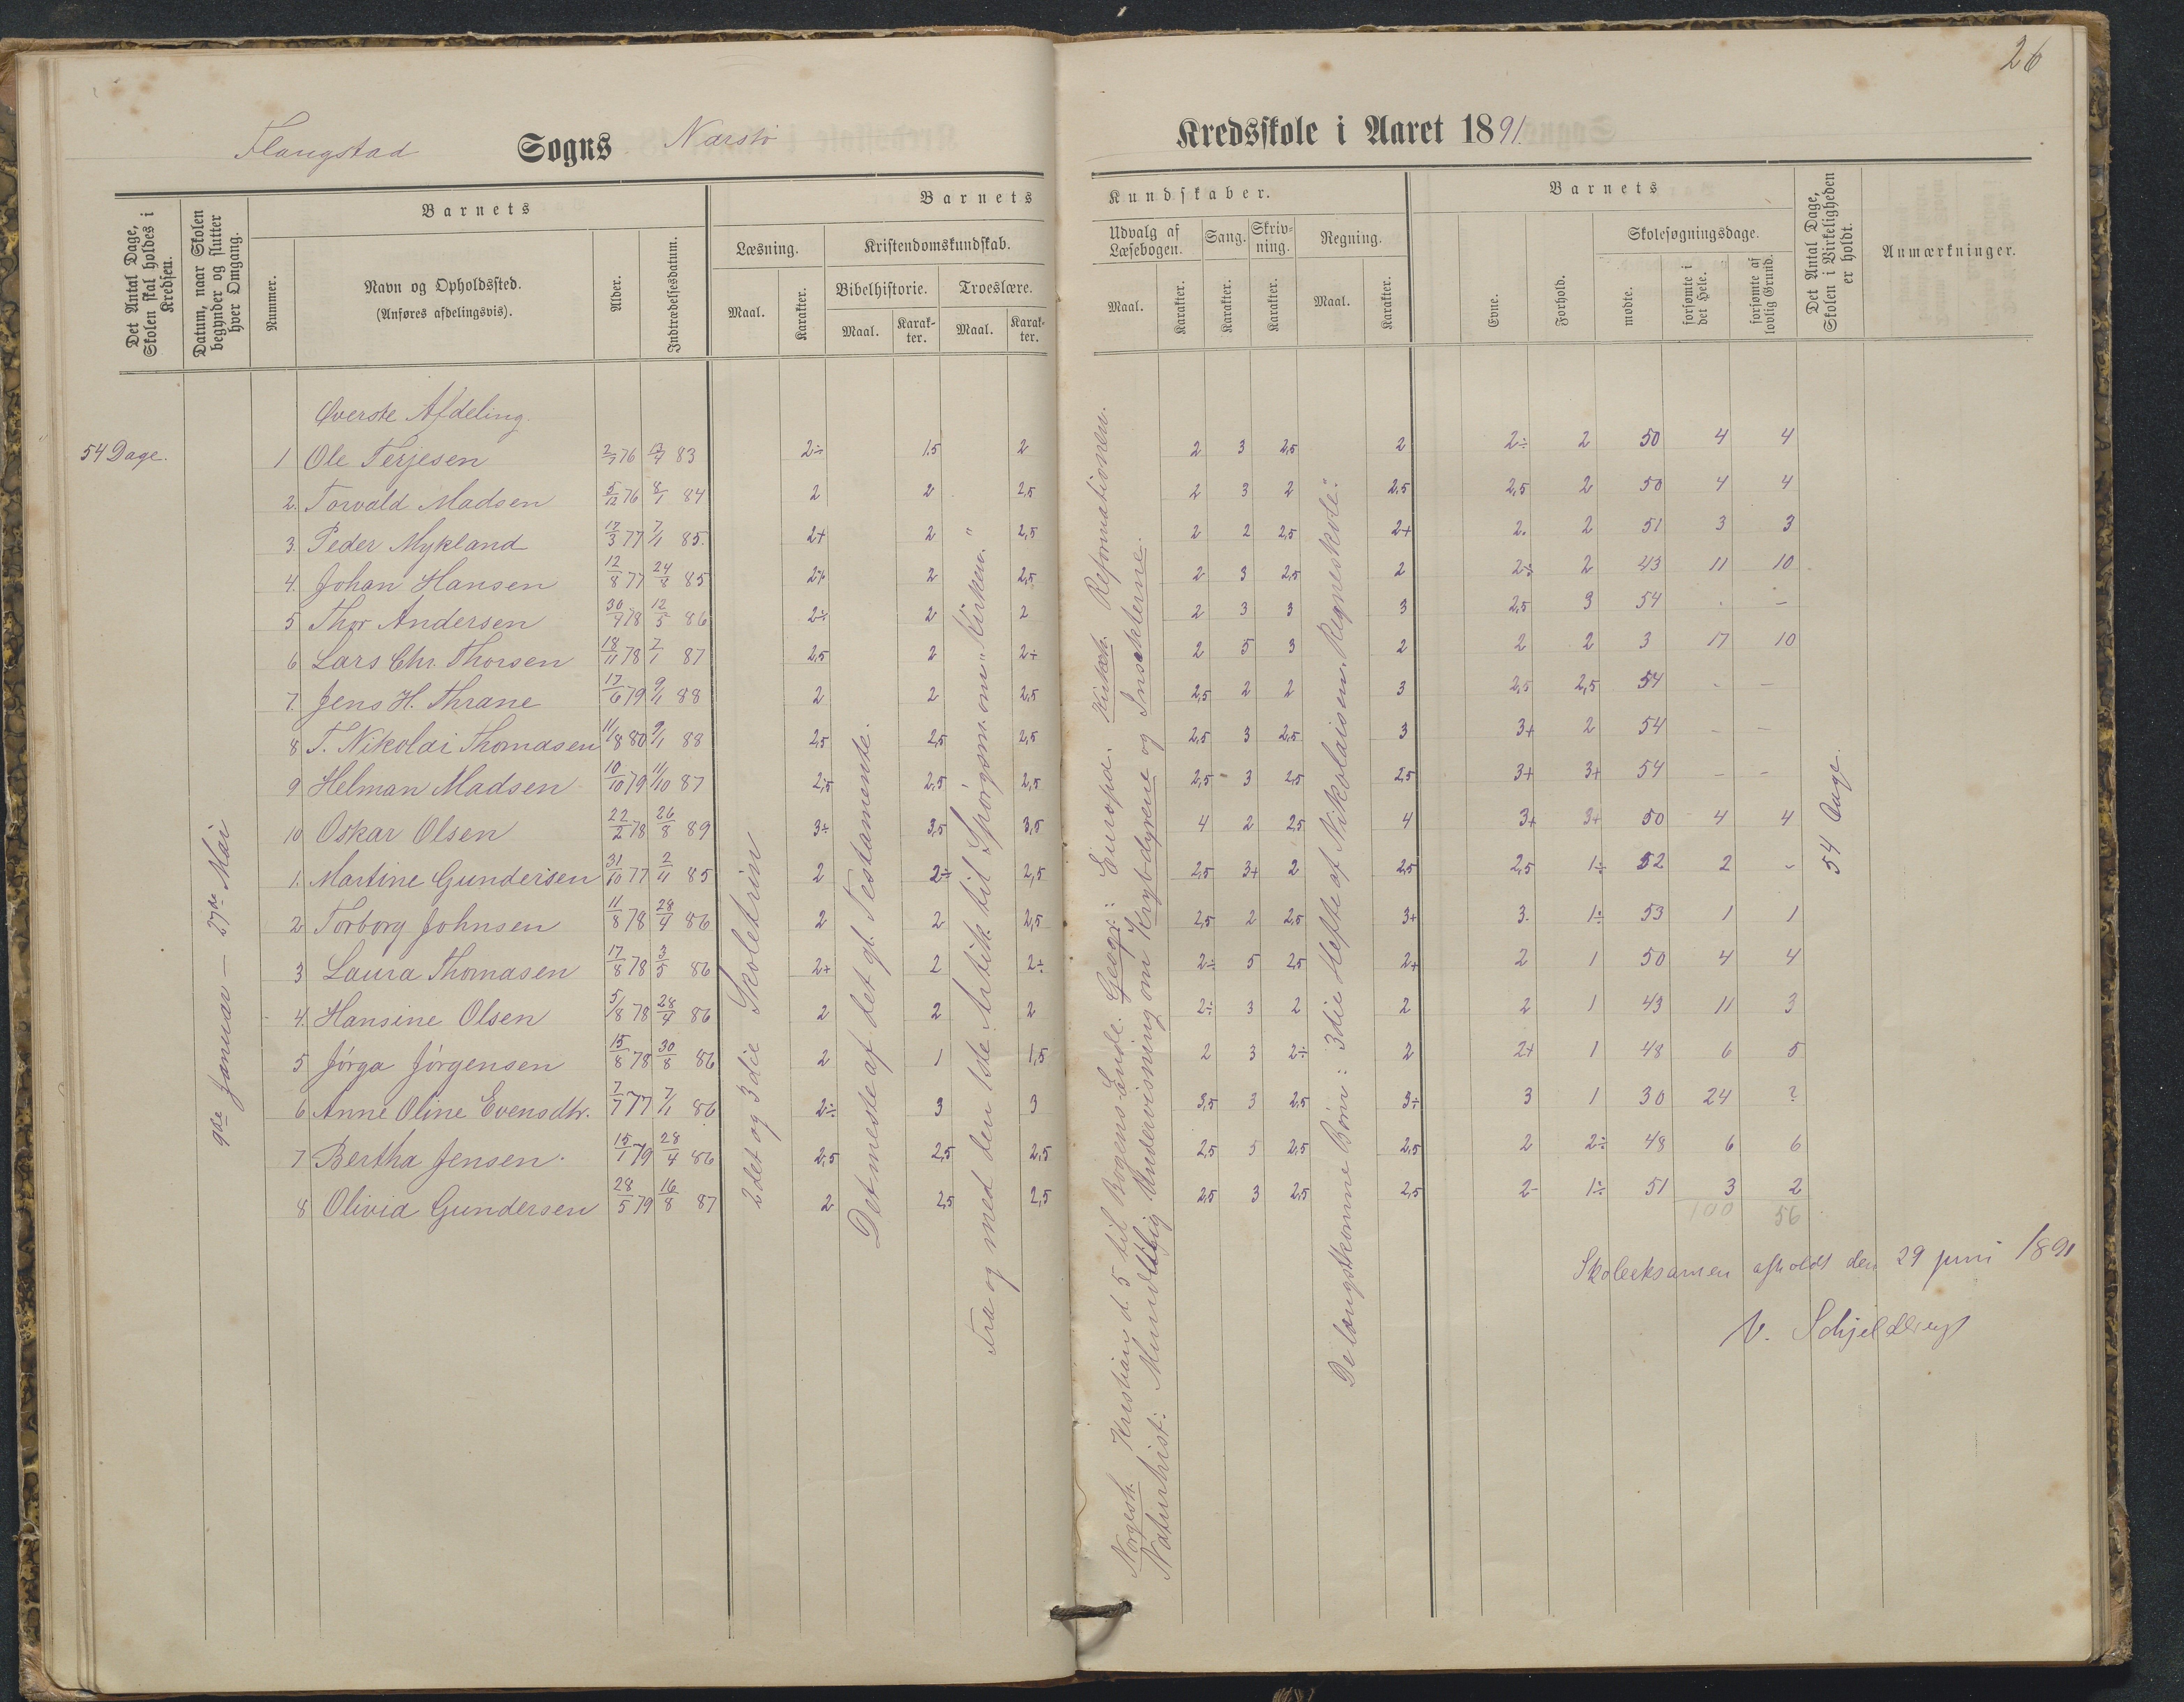 26
Flangstad Sogns Narstø Kredsskole i Aaret 1891.
Det Antal Dage, Skolen skal holdes i Kredsen.
Datum, naar Skolen begynder og slutter hver Omgang.
Barnets
Nummer.
Navn og Opholdssted.
(Anføres afdelingsvis).
Alder.
Indtrædelsesdatum.
Barnets Kundskaber.
Læsning.
Maal. Karakter.
Kristendomskundskab.
Bibelhistorie. Troeslære.
Maal. Karakter. Maal. Karakter.
Udvalg af Læsebogen. Sang. Skrivning. Regning.
Maal. Karakter. Karakter. Karakter. Maal. Karakter.
Barnets
Evne. Forhold.
Skolesøgningsdage.
mødte. forsømte i det Hele. forsømte af lovlig Grund.
Det Antal Dage, Skolen i Virkeligheden er holdt.
Anmærkninger.
Øverste Afdeling.
54 Dage.
1 Ole Terjesen 2/7 76 13/4 83 2÷ 1.5 2 2 3 2,5 2 2÷ 2 50 4 4
2. Torvald Madsen 5/12 76 8/1 84 2 2 2,5 2 3 2 2,5 2,5 2 50 4 4
3. Peder Mykland 17/3 77 7/1 85. 2+ 2 2,5 2 2 2,5 2+ 2. 2 51 3 3
4. Johan Hansen 12/8 77 24/8 85 2+ 2 2,5 2 3 2,5 2 2÷ 2 43 11 10
5 Thor Andersen 30/9 78 12/5 86 2÷ 2 2 2 3 3 3 2,5 3 54 . –
6 Lars Chr. Thorsen 18/11 78 7/1 87 2,5 2 2+ 2 5 3 2 2 2 3 17 10
7. Jens H. Thrane 17/6 79 9/1 88 2 2 2,5 2,5 2 2 3 2,5 2,5 54 - –
8 T. Nikolai Thomasen 11/8 80 9/1 88 2,5 2,5 2,5 2,5 3 2,5 3 3+ 2 54 – –
9 Helman Madsen 10/10 79 11/10 87 2,5 2,5 2,5 2,5 3 2,5 2,5 3+ 3+ 54 – –
10 Oskar Olsen 22/2 78 26/8 89 3÷ 3,5 3,5 4 2 2,5 4 3+ 3+ 50 4 4
1. Martine Gundersen 31/10 77 2/11 85 2 2÷ 2,5 2,5 3+ 2 2,5 2,5 1÷ 52 2 –
2 Torborg Johnsen 11/8 78 28/4 86 2 2 2,5 2,5 2 2,5 3+ 3. 1÷ 53 1 1
3 Laura Thomasen 17/8 78 3/5 86 2+ 2 2÷ 2÷ 5 2,5 2+ 2 1 50 4 4
4. Hansine Olsen 5/8 78 28/4 86 2 2 2 2÷ 3 2 2 2 1 43 11 3
5 Jórga Jórgensen 15/8 78 30/8 86 2 1 1,5 2 3 2÷ 2 2+ 1 48 6 5
6 Anne Oline Evensdtr. 7/7 77 7/1 86 2÷ 3 3 3,5 3 2,5 3÷ 3 1 30 24 ?
7 Bertha Jensen. 15/1 79 28/4 86 2,5 2,5 2,5 2,5 5 2,5 2,5 2 2÷ 48 6 6
8 Olivia Gundersen 28/5 79 16/8 87 2 2,5 2,5 2,5 3 2,5 2,5 2- 1÷ 51 3 2
100 56
9de Januar – 27de Mai
2det og 3die Skoletrin
Det meste af det gl. Testamente.
Fra og med den 1ste Artikk. til Spørgsm. om „Kirken."
Norgesh. Kristian d. 5 til Bogens Ende. Geogr.: Europa. Kirkeh. Reformationen.
Naturhist: Mundtlig Undervisning om Krybdyrene og Insekterne.
De længstkomne Børn: 3die Hefte af Nikolaisens Regneskole.
54 Dage.
Skoleeksamen afholdt den 29 juni 1891
N. Schjeldrup